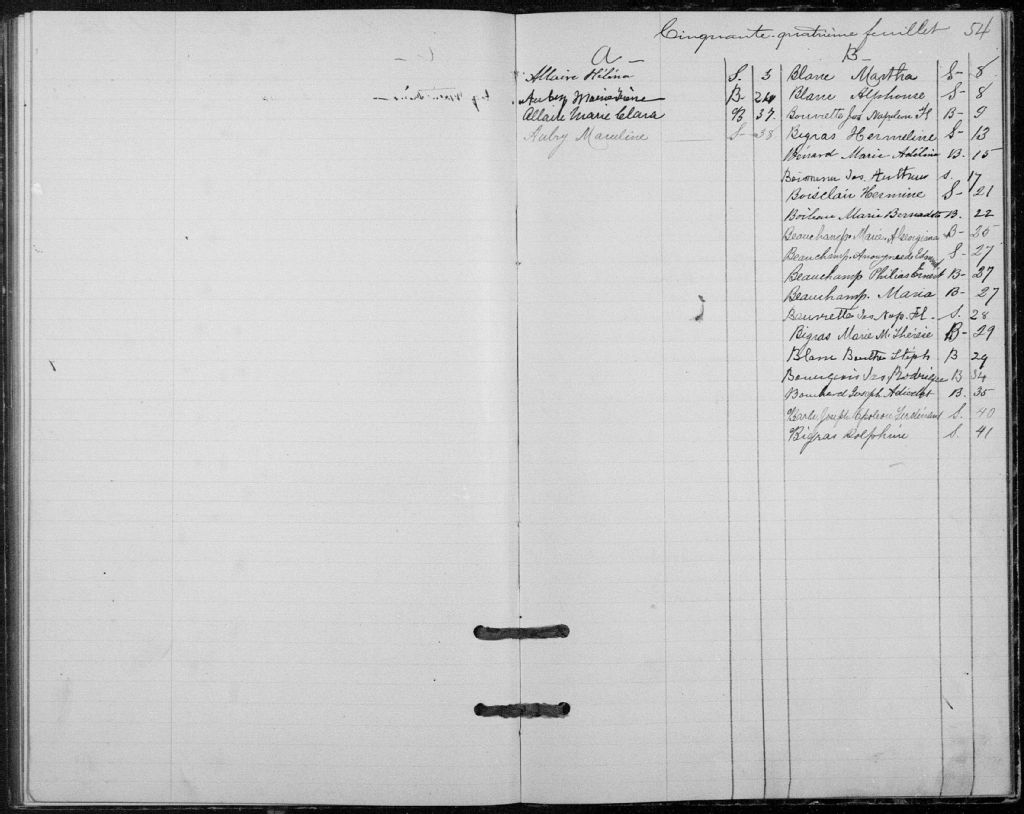 Cinquante-quatrième feuillet 54
A
Allaire Hélina S. 3
Aubry Marie Irène B- 24
Allaire Marie Clara B 37
Aubry Marceline S- 38
B-
Blane Martha S- 8
Blane Alphonse S- 8
Bouvrette Jos Napoleon Fl B- 9
Bigras Hermeline S- 13
Bénard Marie Adélina B. 15
Jos. Arthur S. 17
Boisclair Hermine S- 21
Boileau Marie Bernadette B. 22
Beauchamp. Marie. A. Georgiana B- 25
Beauchamp. Anonyme de Edmond S- 27
Beauchamp Philias Ernest B- 27
Beauchamp. Maria B- 27
Bouvrette Jos Nap. Fl. S. 28
Bigras Marie M. Thérèse B- 29
Blanc Steph B 29
Bourgeois Jos. Rodrigue B 34
Bouchard Joseph B. 35
Joseph Ferdinand S. 40
Bigras Dolphine S. 41